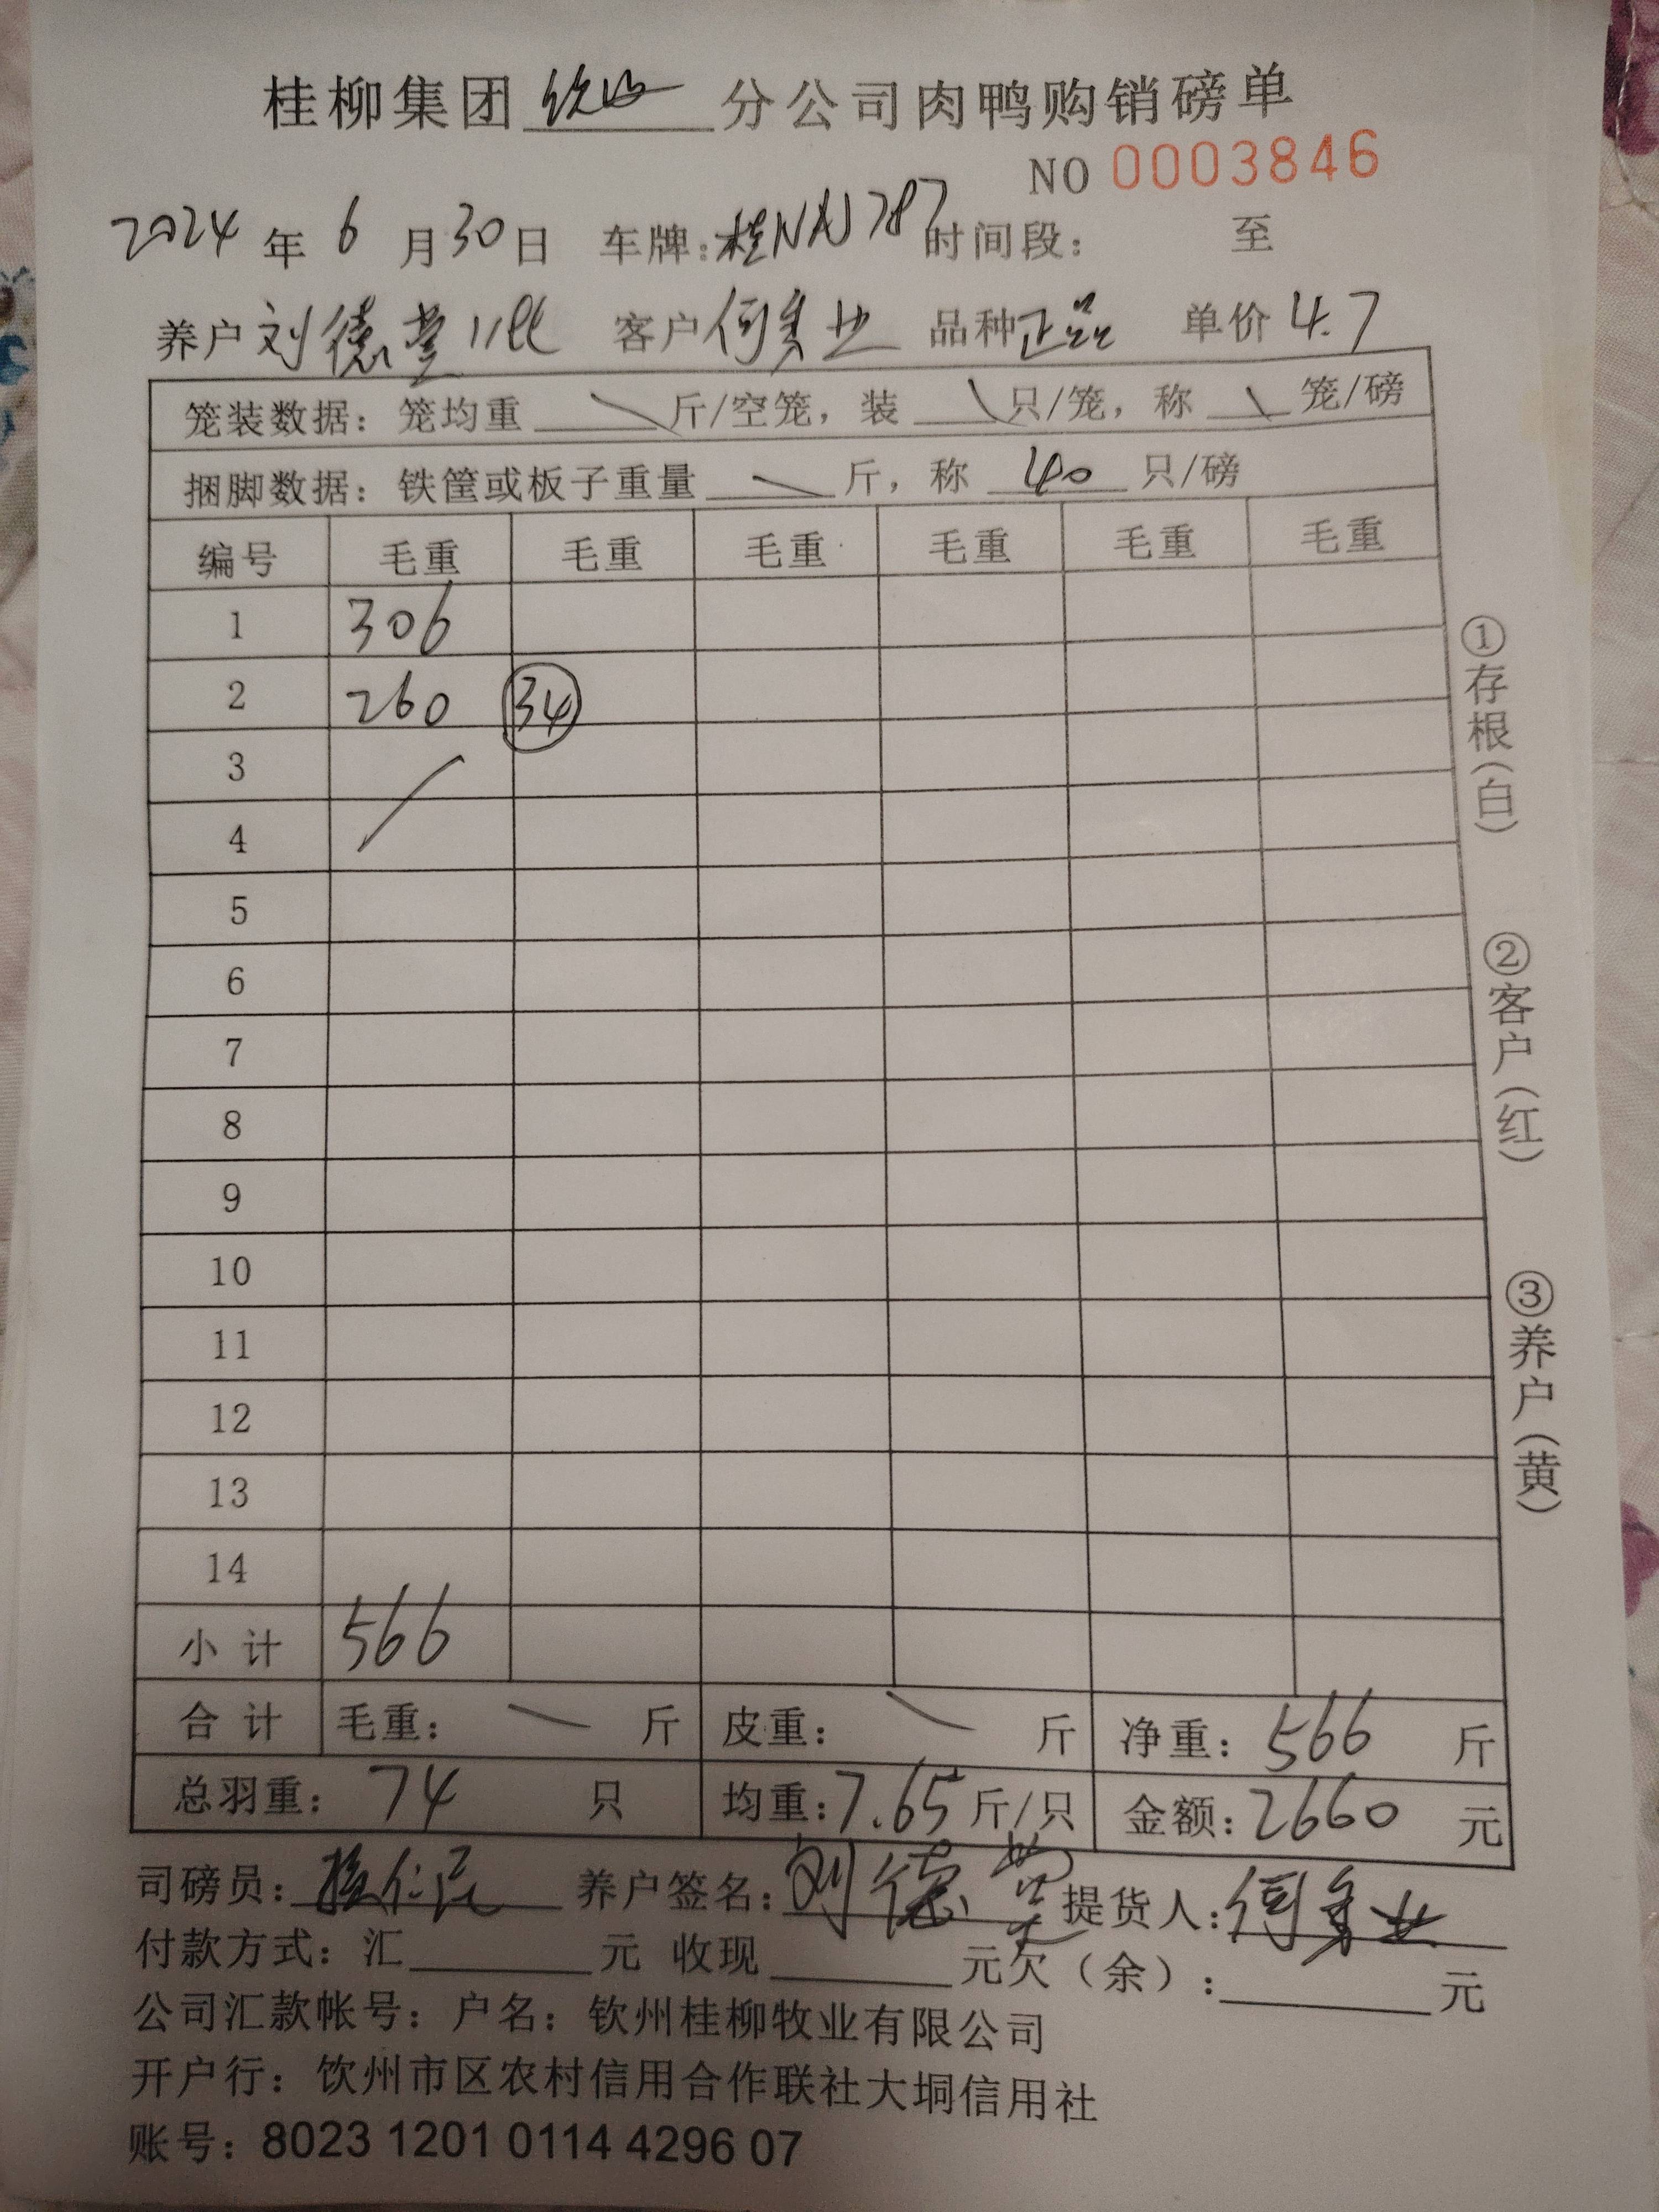 桂柳集团 分公司肉鸭购销磅单
NO 0003846
2024 年 6 月 30 日 车牌: 桂N 787 时间段: 至
养户 刘德 客户 何 业 品种 正品 单价 4.7
笼装数据: 笼均重 斤/空笼, 装 只/笼, 称 笼/磅
捆脚数据: 铁筐或板子重量 斤, 称 40 只/磅
编号 毛重 毛重 毛重 毛重 毛重 毛重
1 306
2 260 34
3
4
5
6
7
8
9
10
11
12
13
14
小计 566
合计 毛重: 斤 皮重: 斤 净重: 566 斤
总羽重: 74 只 均重: 7.65 斤/只 金额: 2660 元
司磅员: 养户签名: 刘德 提货人: 何 业
付款方式: 汇 元 收现 元欠(余): 元
公司汇款帐号: 户名: 钦州桂柳牧业有限公司
开户行: 饮州市区农村信用合作联社大垌信用社
账号: 8023 1201 0114 4296 07
①存根(白)
②客户(红)
③养户(黄)